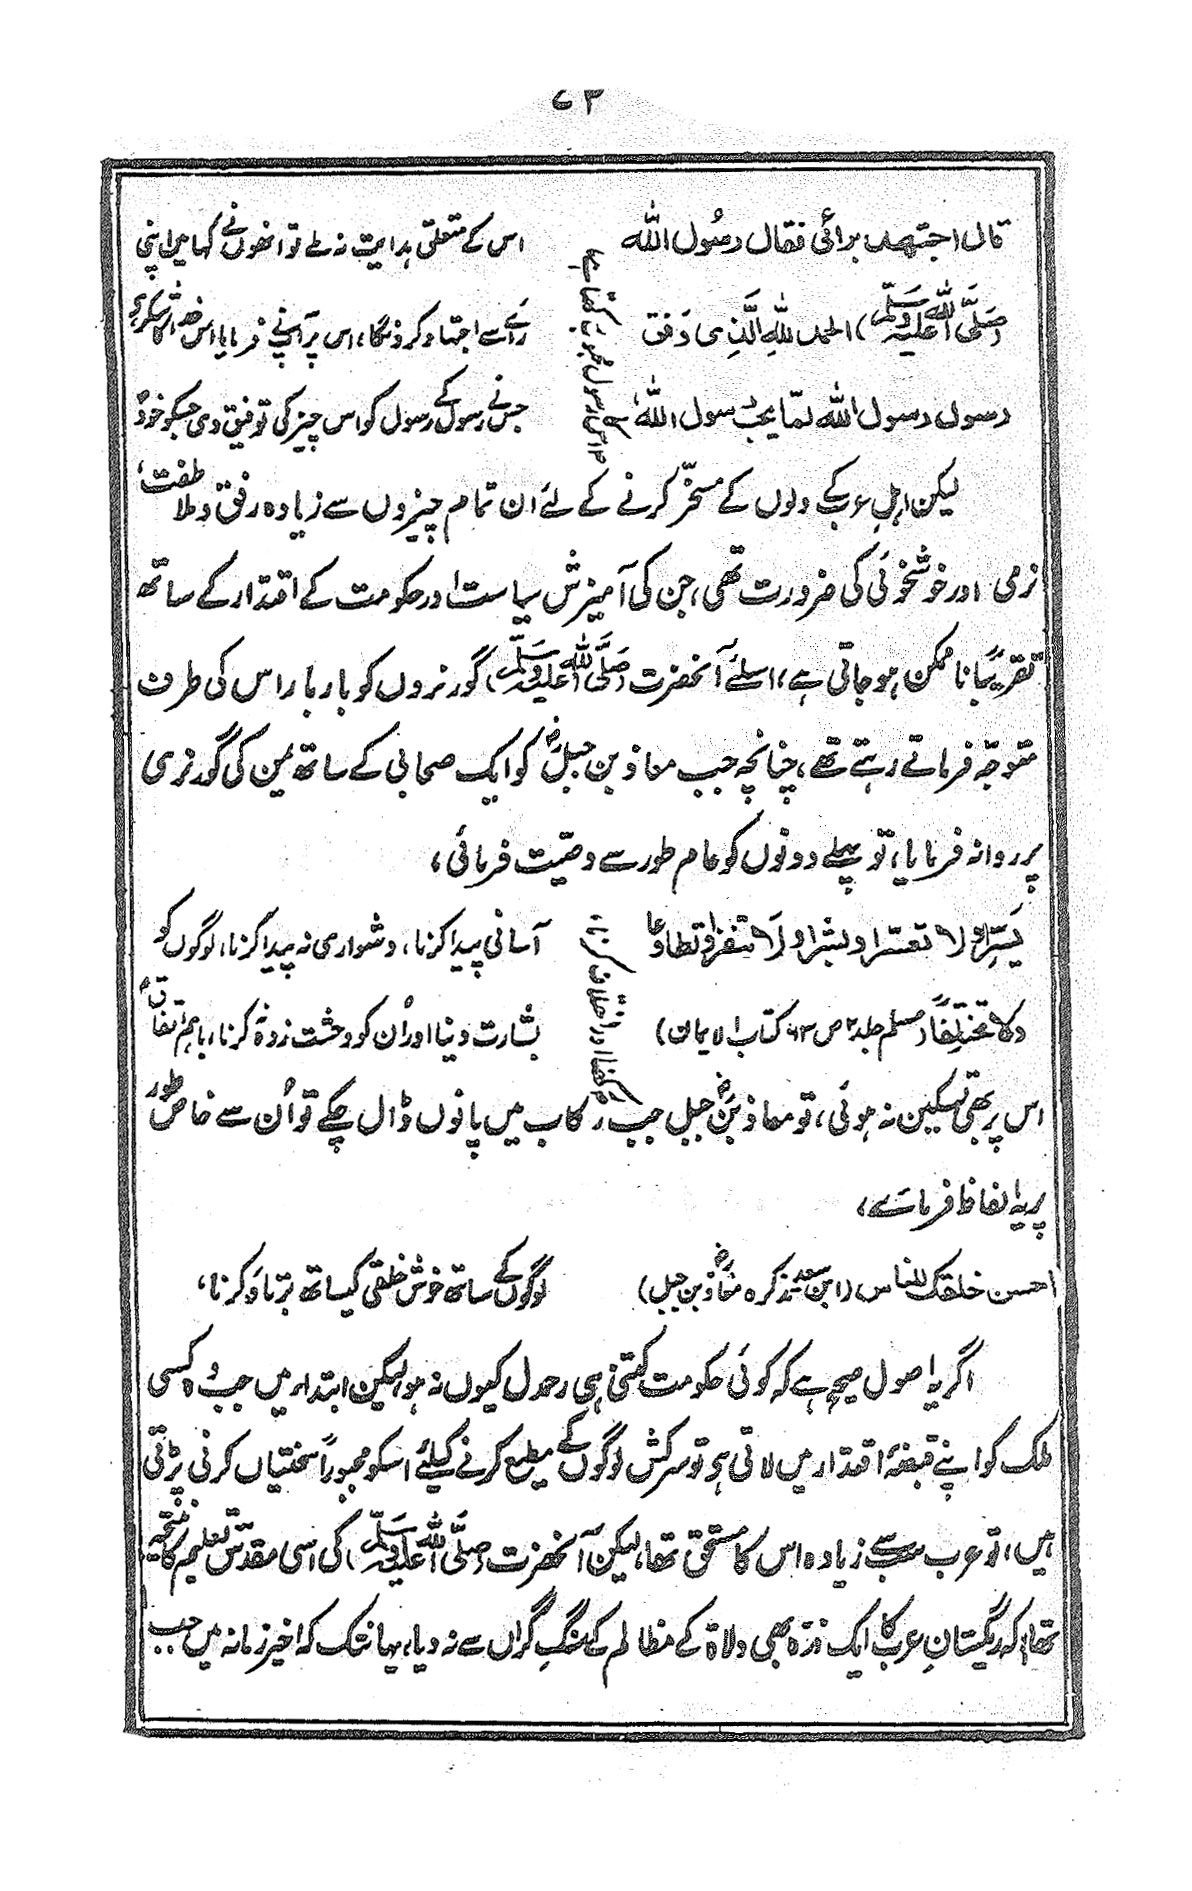 ۷۳
قال اجتهد برائی فقال رسُول اللّٰه
(صَلَّی اللّٰه عَلَیْہِ وَسَلَّم) الحمد للّٰهِ الَّذِی وَفق
رسول رسول اللّٰه لمّا یحب رسول اللّٰه،
اس کے متعلق ہدایت نہ ملے تو انھوں نے کہا میں اپنی
رائے سے اجتہاد کرونگا، اس پر آپنے فرمایا اس خدا کا شکر ہے
جس نے رسول کے رسول کو اس چیز کی توفیق دی جسکو خود
اس کا رسول محبوب رکھتا ہے،
لیکن اہلِ عرب کے دلوں کے مسخّر کرنے کے لئے ان تمام چیزوں سے زیادہ رفق و ملاطفت،
نرمی اور خوشخوئی کی ضرورت تھی، جن کی آمیزش سیاست اور حکومت کے اقتدار کے ساتھ
تقریبًا ناممکن ہو جاتی ہے، اسلئے آنحضرت (صَلَّی اللّٰه عَلَیْہِ وَسَلَّم) گورنروں کو بار بار اس کی طرف
متوجّہ فرماتے رہتے تھے، چنانچہ جب معاذ بن جبلؓ کو ایک صحابی کے ساتھ یمن کی گورنری
پر روانہ فرمایا، تو پہلے دونوں کو عام طور سے وصیّت فرمائی،
یَسِّرا ولا تعسّرا وبشّرا ولَا تنفرا وتطاوعا
ولا تختلفا (مسلم جلد ۲ ص ۶۳ کتاب الایمان)
آسانی پیدا کرنا، دشواری نہ پیدا کرنا، لوگوں کو
بشارت دینا اور اُن کو وحشت زدہ نہ کرنا، باہم اتفاق
رکھنا اور اختلاف نہ کرنا،
اس پر بھی تسکین نہ ہوئی، تو معاذ بنؓ جبل جب رکاب میں پانوں ڈال چکے تو اُن سے خاص طور
پر یہ الفاظ فرمائے،
احسن خلقک للناس (ابن سعد تذکرہ معاذؓ بن جبل)
لوگوں کے ساتھ خوش خلقی کیساتھ برتاؤ کرنا،
اگر یہ اصول صحیح ہے کہ کوئی حکومت کتنی ہی رحمدل کیوں نہ ہو لیکن ابتداء میں جب وہ کسی
ملک کو اپنے قبضۂ اقتدار میں لاتی ہو تو سرکش لوگوں کے مطیع کرنے کیلئے اسکو مجبوراً سختیاں کرنی پڑتی
ہیں، تو عرب سب سے زیادہ اس کا مستحق تھا، لیکن آنحضرت (صَلَّی اللّٰه عَلَیْہِ وَسَلَّم) کی اسی مقدّس تعلیم کا نتیجہ
تھا، کہ ریگستانِ عرب کا ایک ذرّہ بھی ولاۃ کے مظالم کے سنگِ گراں سے نہ دبا، یہانتک کہ اخیر زمانہ میں جب